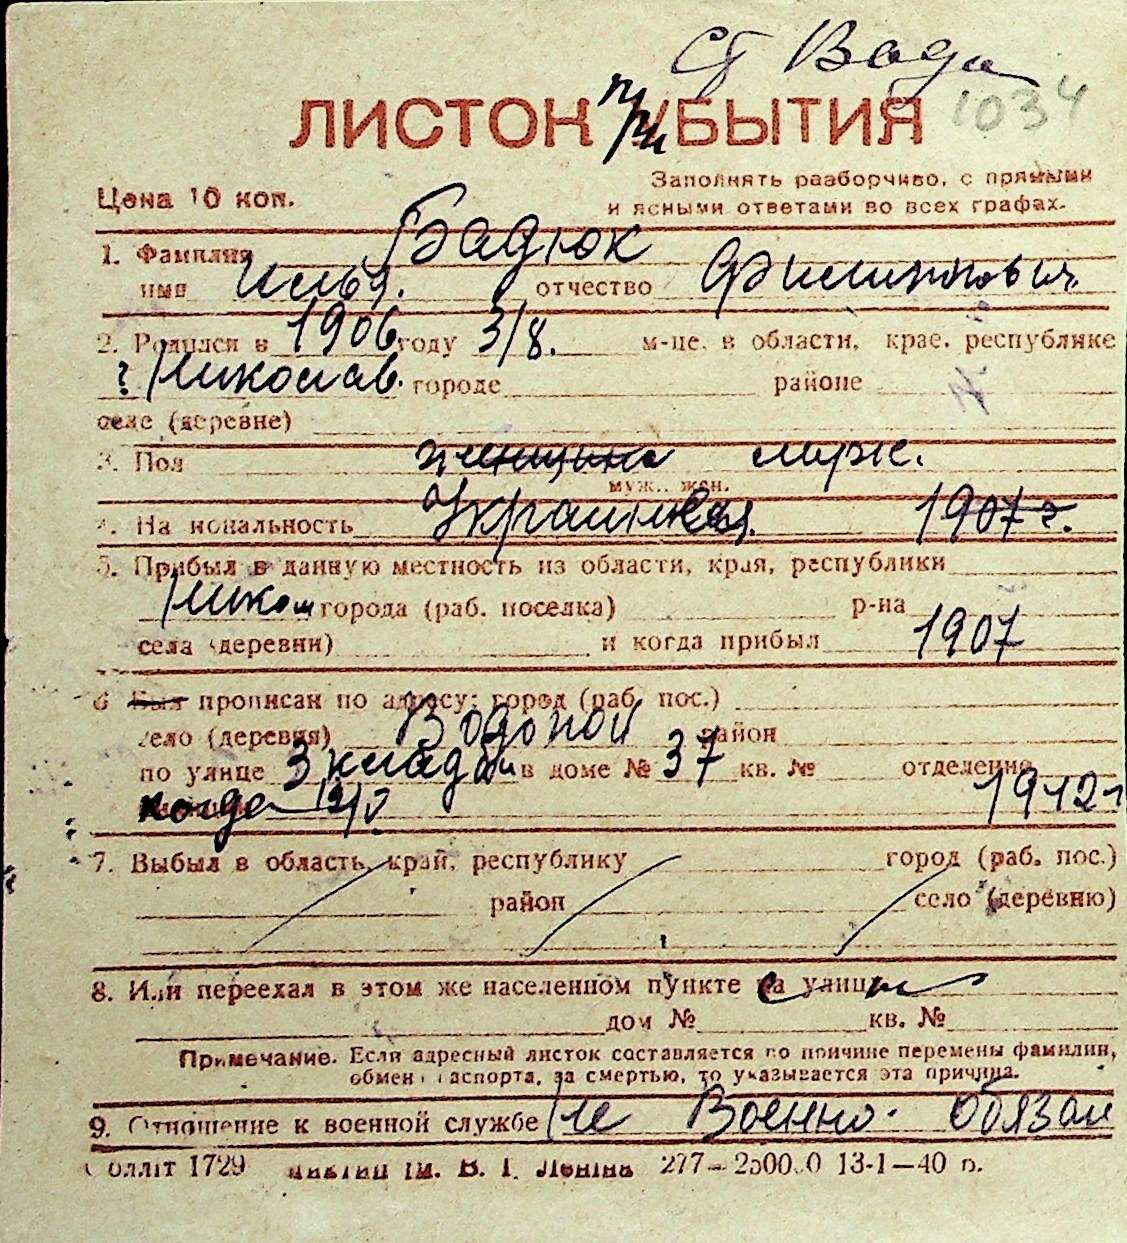 Ст Вади
ЛИСТОК при УБЫТИЯ 1034
Цена 10 коп.
Заполнять разборчиво, с прямыми
и ясными ответами во всех графах.
1. Фамилия Бадюк
имя Илья. отчество Филиппович
2. Родился в 1906 году 3/8. м-це. в области, крае, республике
г Николаев. городе районе
селе (деревне)
3. Пол женщина муж.
муж., жен.
4. Национальность Украинская. 1907 г.
5. Прибыл в данную местность из области, края, республики
Никол города (раб. поселка) р-на
села (деревни) и когда прибыл 1907
6 Был прописан по адресу: город (раб. пос.)
село (деревня) Водопой район
по улице 3 кладби в доме № 37 кв. № отделение
когда 19/V 1942
7. Выбыл в область, край, республику город (раб. пос.)
район село (деревню)
8. Или переехал в этом же населенном пункте на улицу
дом № кв. №
Примечание. Если адресный листок составляется по причине перемены фамилии,
обмен паспорта, за смертью, то указывается эта причина.
9. Отношение к военной службе Не Военно-обязан
Обллiт 1729 iм. В. I. Ленiна 277—2500.0 13-1—40 р.